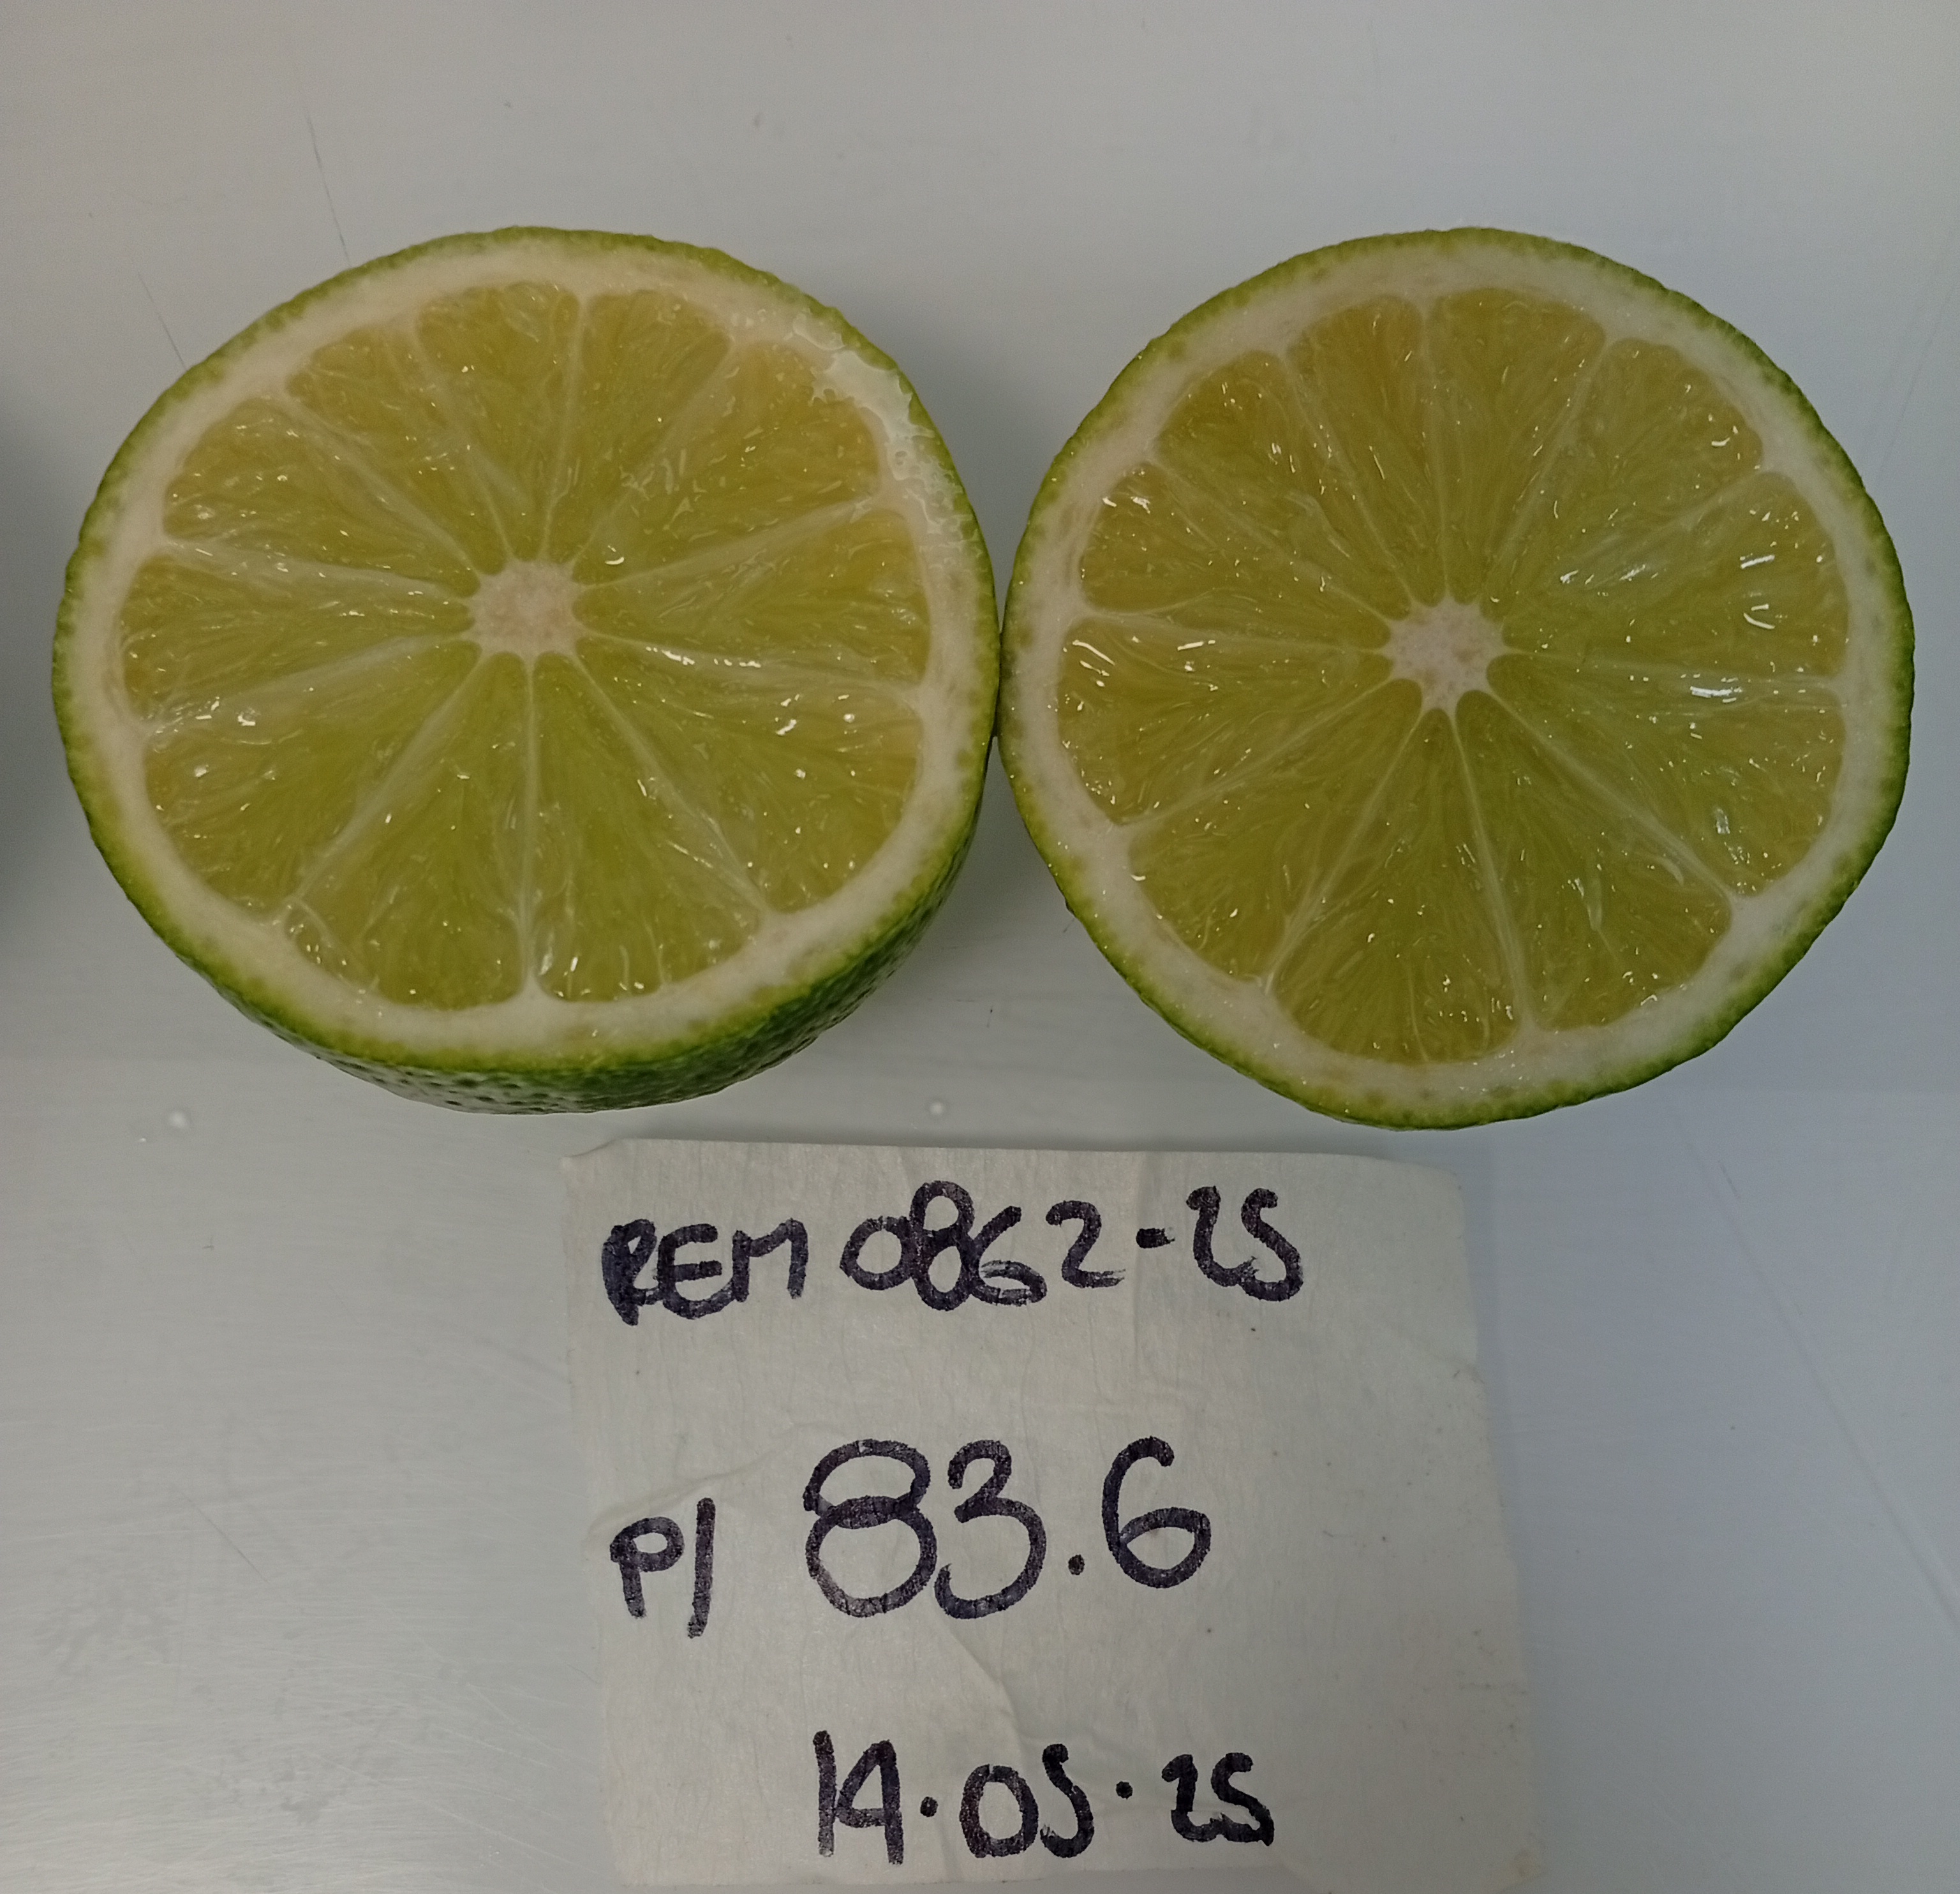 REM 0862-25
P/ 83.6
14.05.25